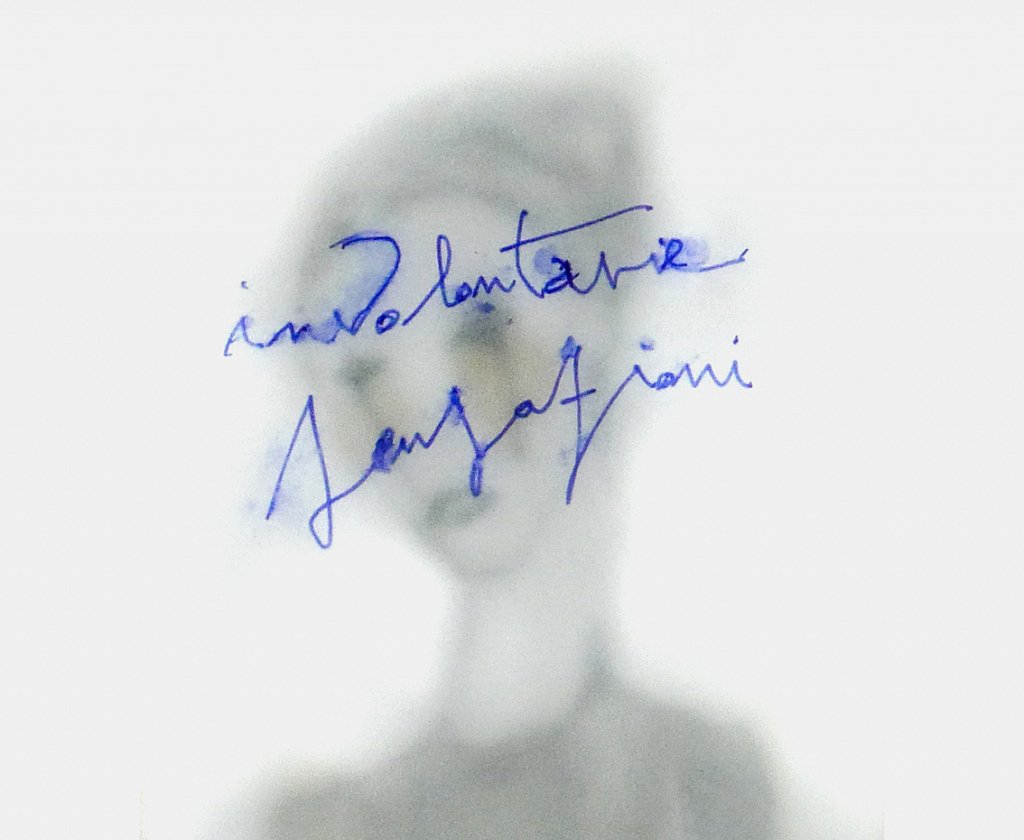 involontarie
sensazioni